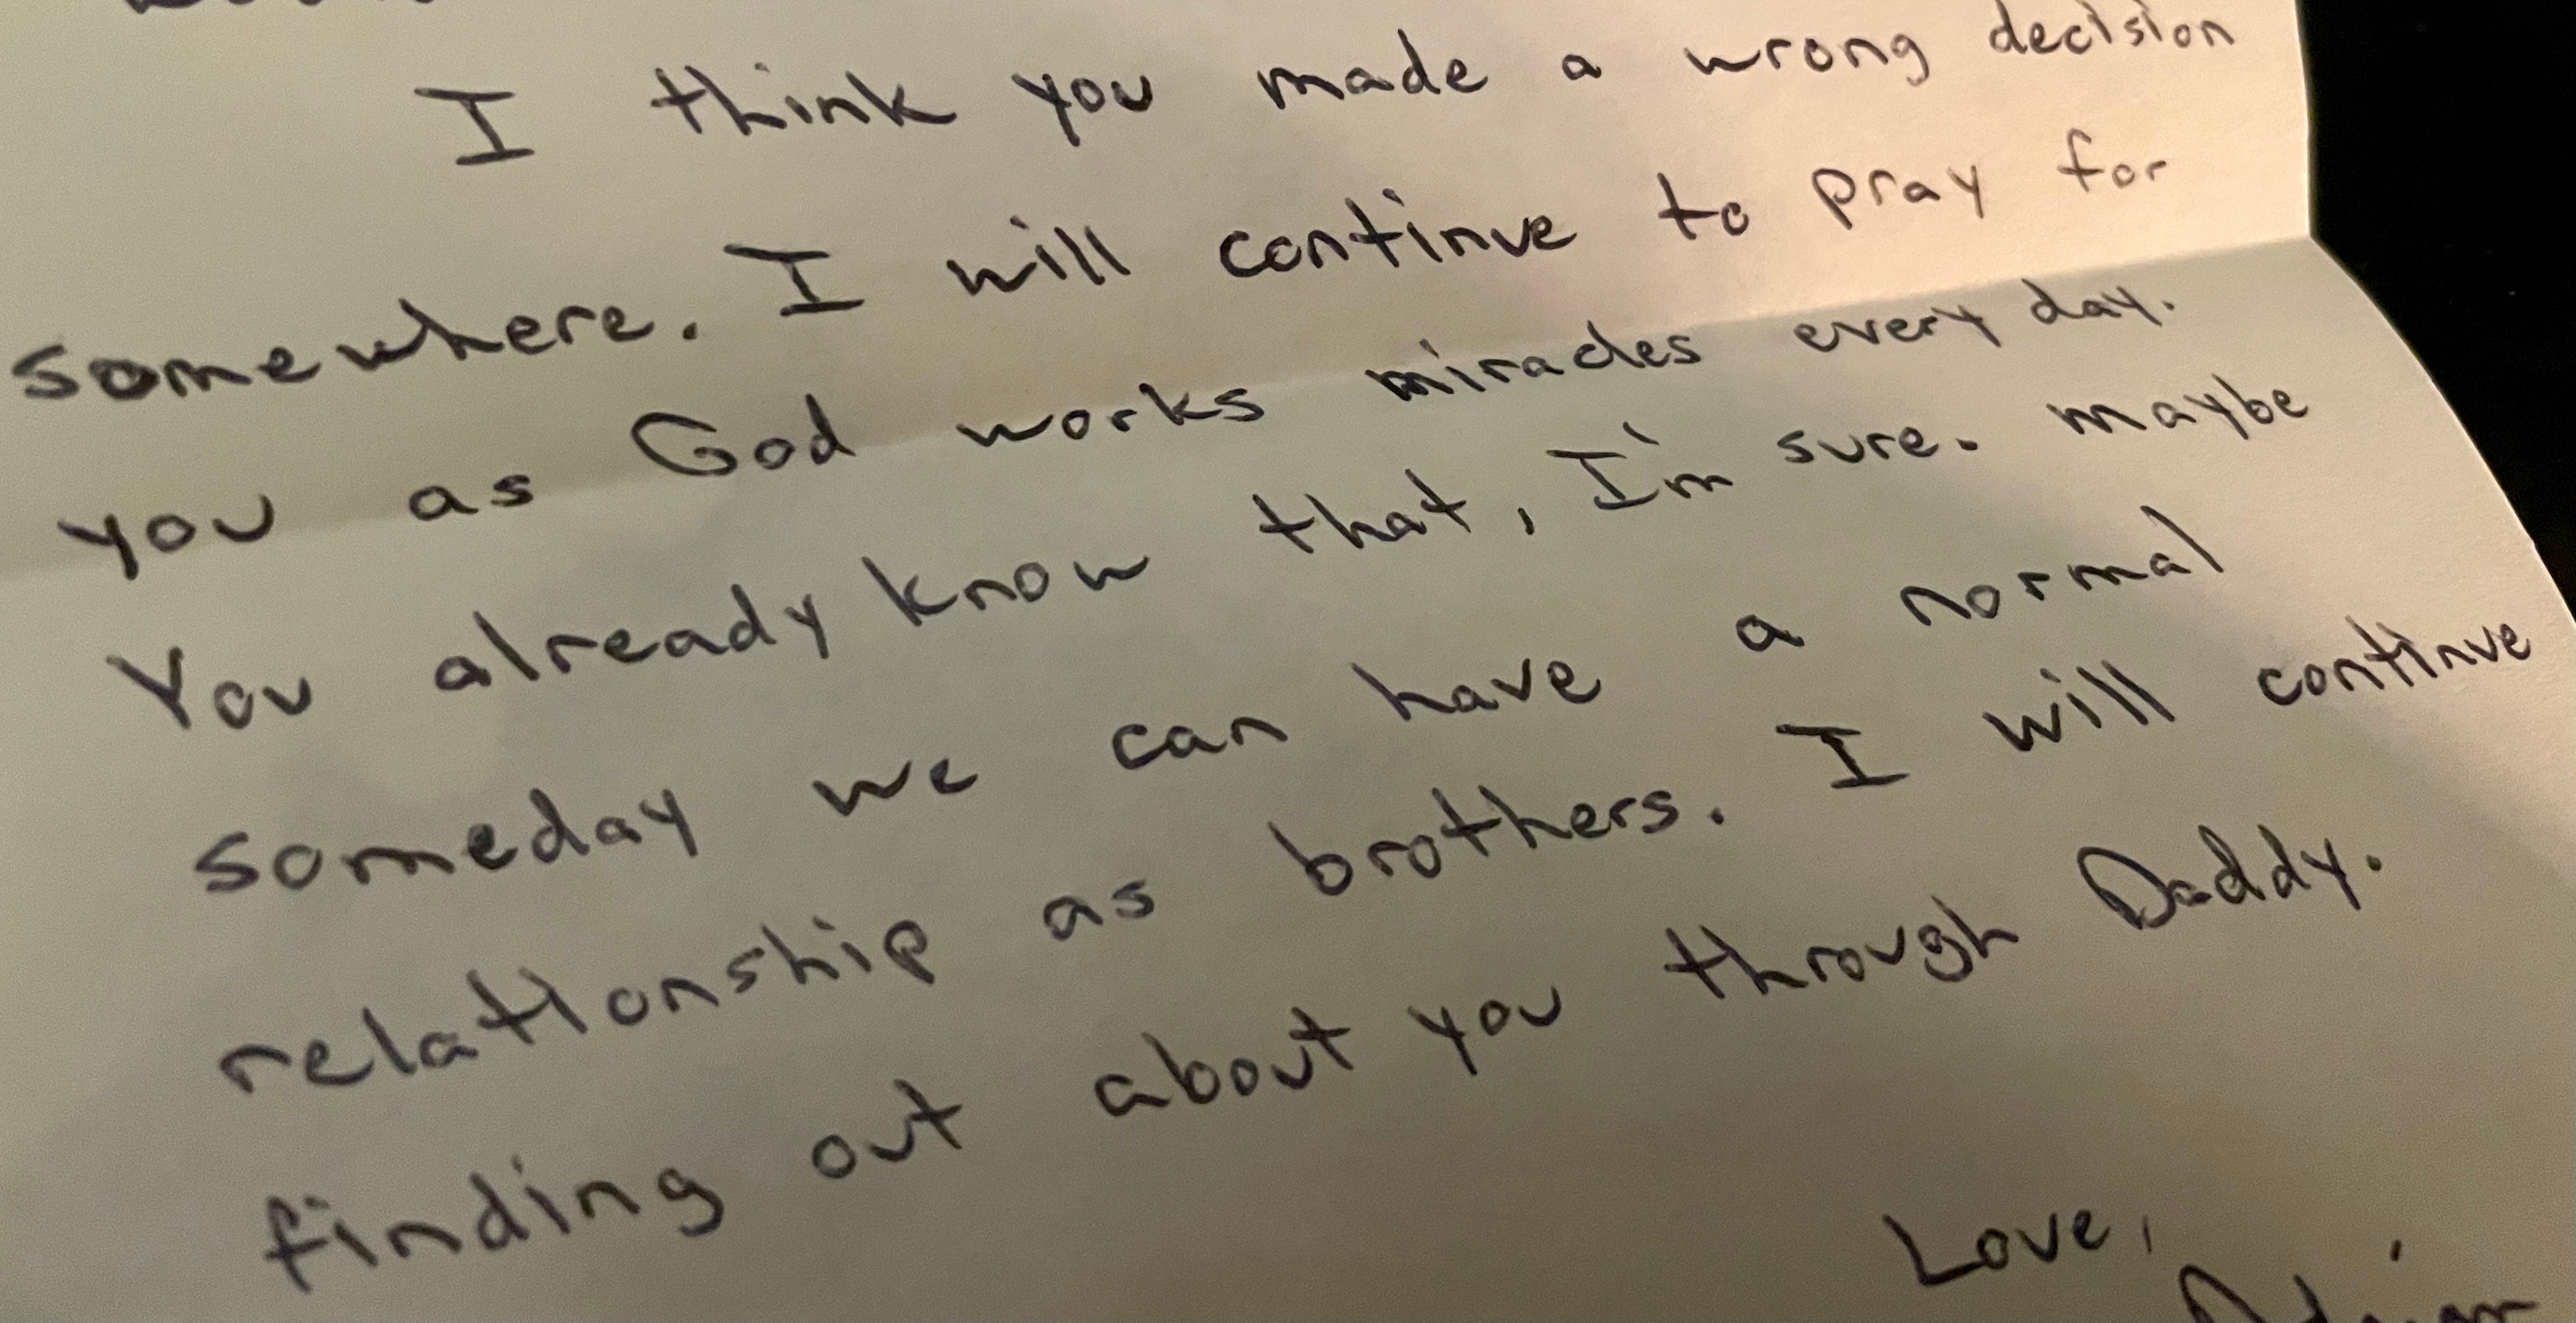 I think you made a wrong decision
somewhere. I will continue to pray for
you as God works miracles every day.
You already know that, I'm sure. maybe
someday we can have a normal
relationship as brothers. I will continue
finding out about you through Daddy.
Love,